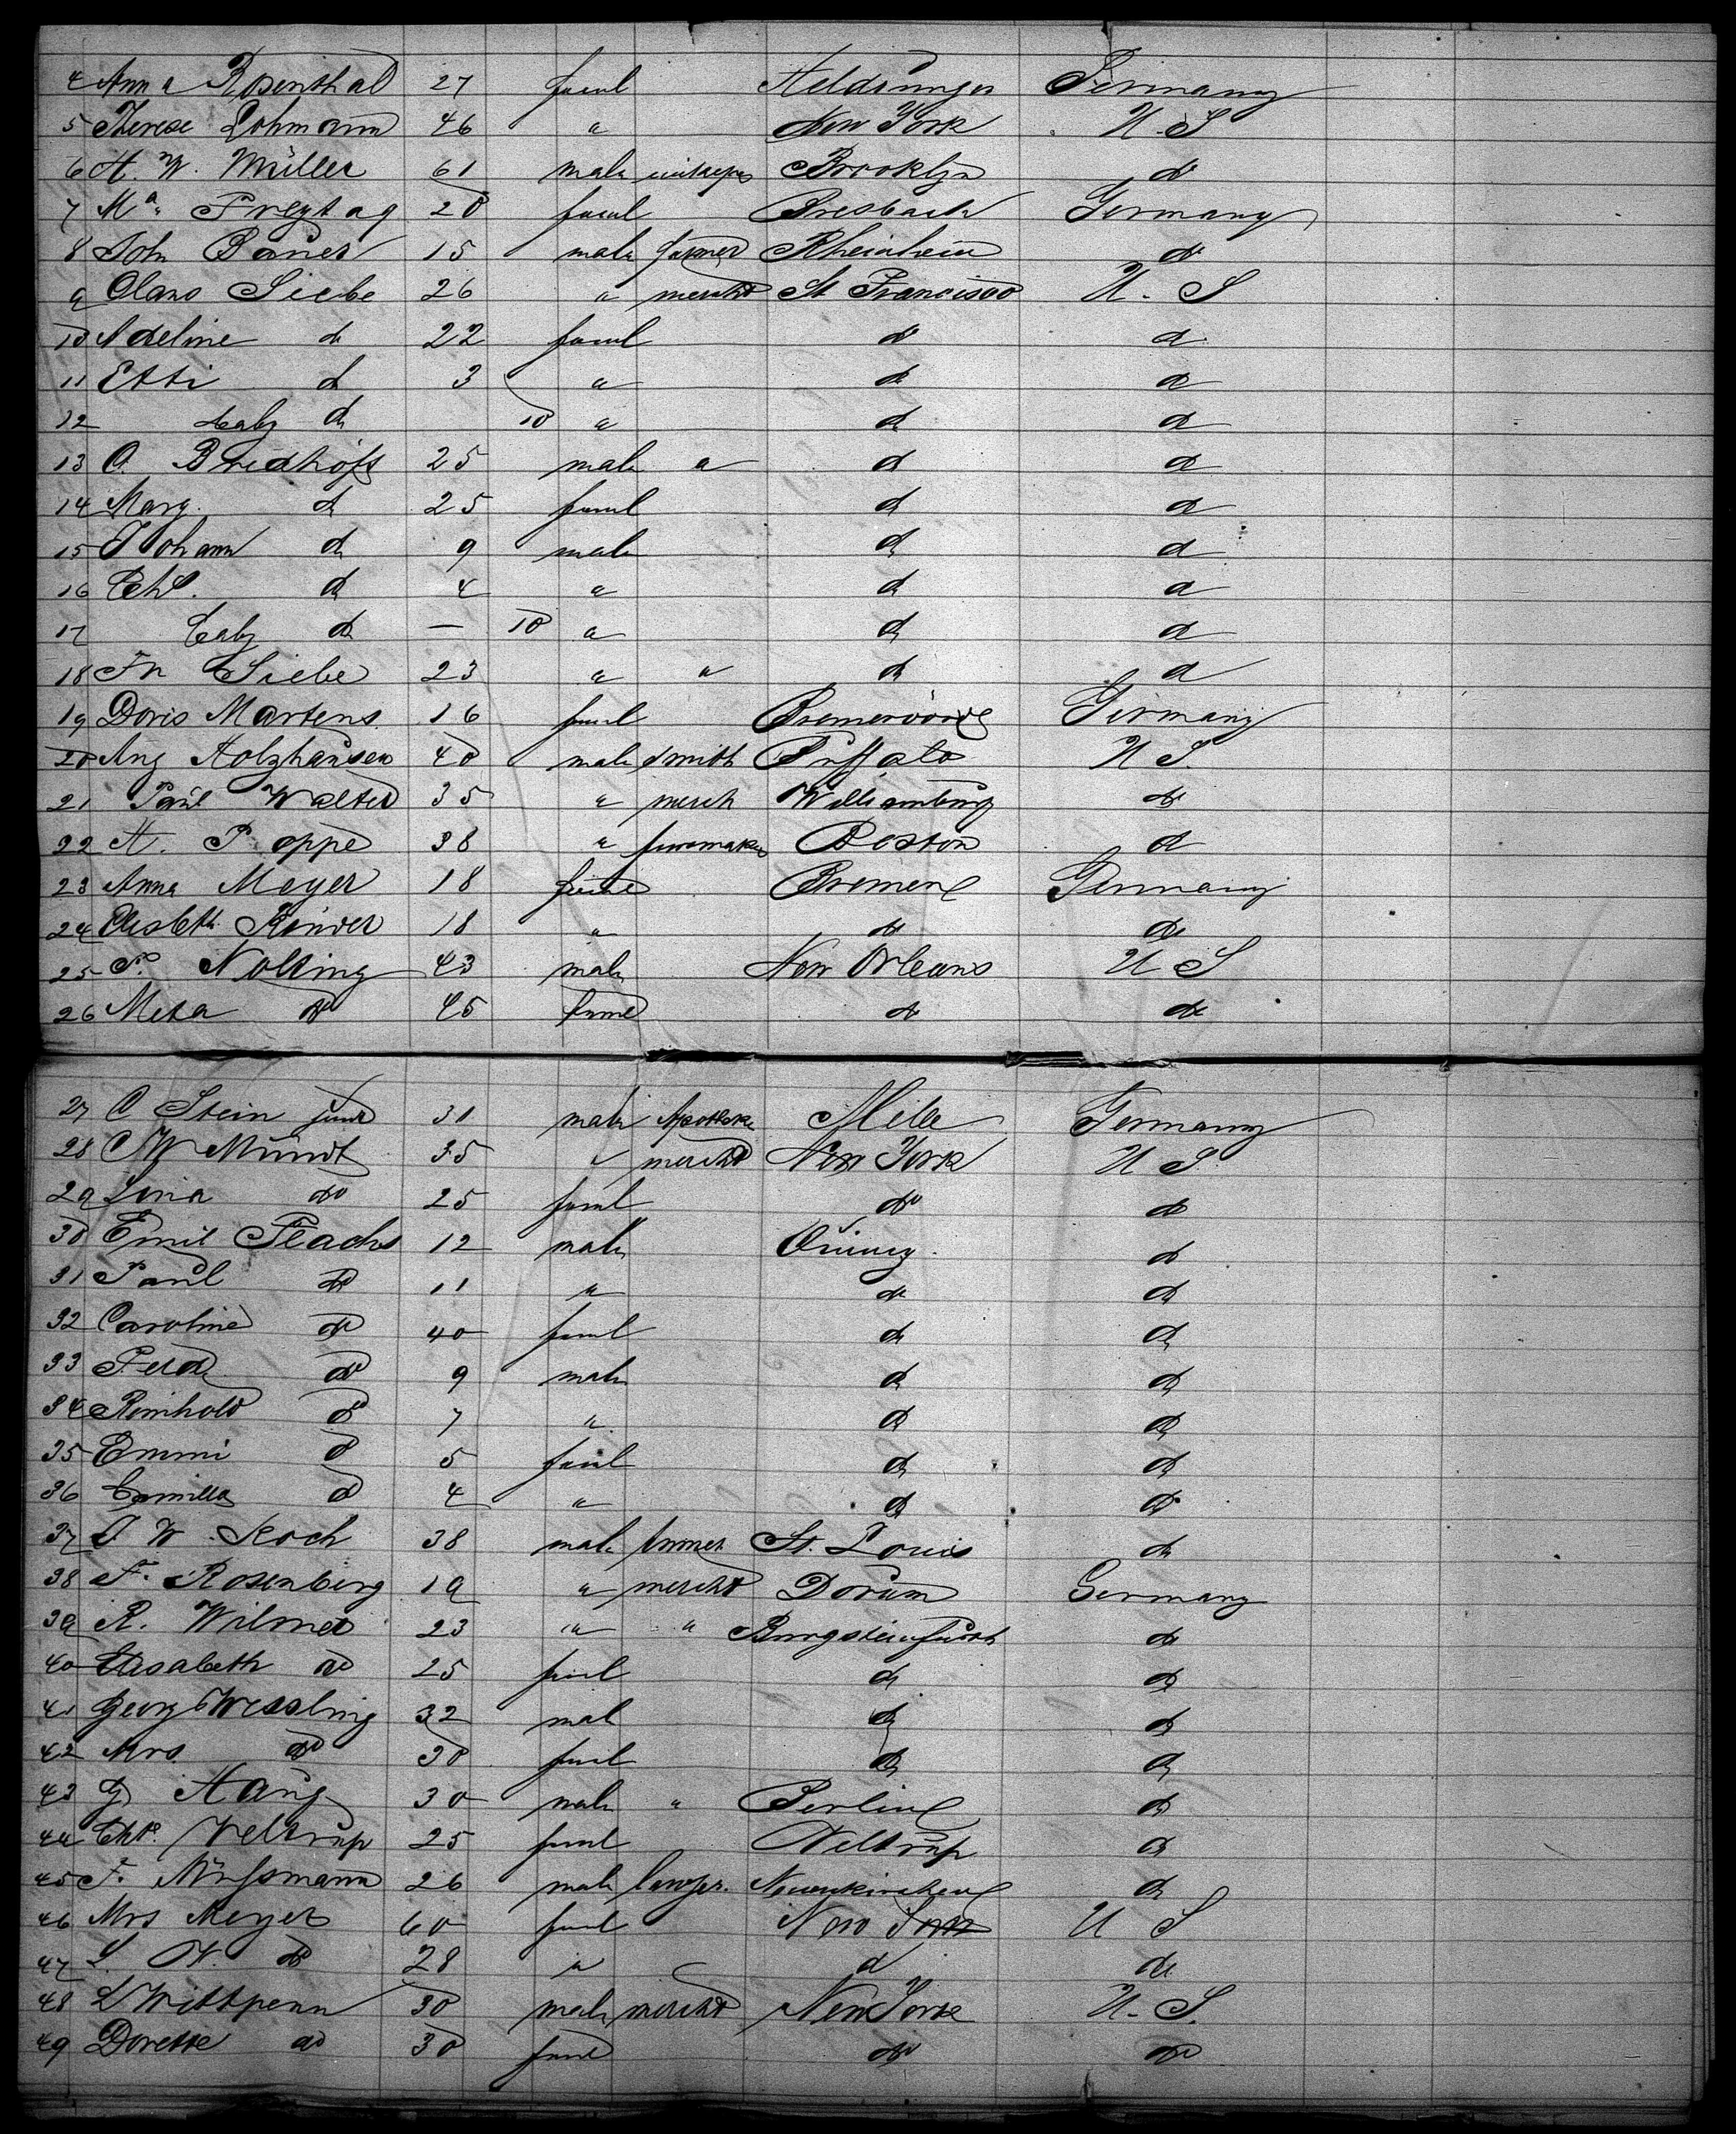 4 Anna Rosenthal 27 feml Heldrungen Germany
5 Therese Lohmann 46 " New York U.S
6 H. W. Müller 61 male Brooklyn do
7 Ma. Freytag 20 feml Germany
8 Joh Bauer 15 male farmer Rheinheim do
9 Claus Siebe 26 " mercht St Francisco U.S
10 Adeline do 22 feml do do
11 Etti do 3 " do do
12 baby do 10 " do do
13 C. Bredhöft 25 male " do do
14 Marg. do 25 feml do do
15 Johann do 9 male do do
16 Chr. do 4 " do do
17 baby do — 10 " do do
18 Fr Siebe 23 " " do do
19 Doris Martens 16 feml Bremervörde Germany
20 Aug Holzhausen 40 male smith Buffalo U S.
21 Paul Walter 35 " merch Williamburg do
22 H. Poppe 38 " Boston do
23 Anna Meyer 18 feml Bremen Germany
24 Elisbth. Kinder 18 " do do
25 P. Nolting 43 male New Orleans U S
26 Meta do 45 feml do do
27 C Stein junr 31 male Apotheke Melle Germany
28 C W Mundt 35 " mercht New York U S.
29 Lina do 25 feml do do
30 Emil Flachs 12 male Quincy. do
31 Paul do 11 " do do
32 Caroline do 40 feml do do
33 Ferd. do 9 male do do
34 Reinhold do 7 " do do
35 Emmi do 5 feml do do
36 Camilla do 4 " do do
37 J W. Koch 38 male farmer St. Louis do
38 F. Rosenberg 19 " mercht Dorum Germany
39 R. Wilmer 23 " " Burgsteinfurth do
40 Elisabeth do 25 feml do do
41 Georg Wessling 32 mal do do
42 Mrs do 30 feml do do
43 G Haug 30 male " Berlin do
44 Chr. Veltrup 25 feml Veltrup do
45 F. Nussmann 26 male lawyer. Neuenkirchen do
46 Mrs Meyer 60 feml New York U S
47 L. H. do 28 " do do
48 L Wittpenn 30 male mercht New York U.S.
49 Dorette do 30 feml do do